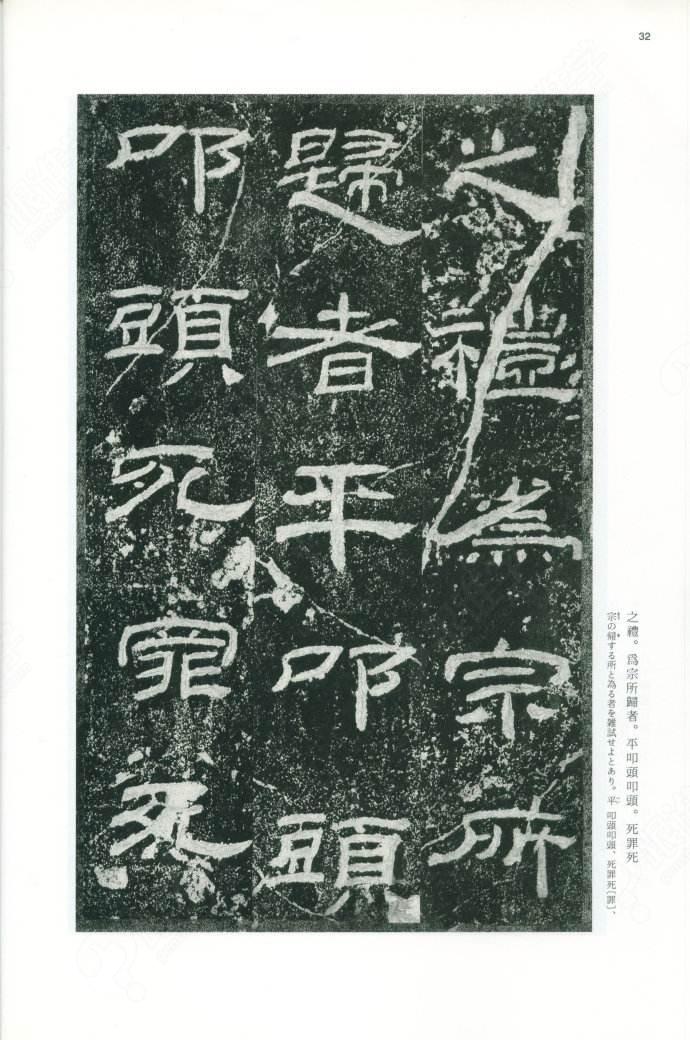 32
之禮爲宗所
歸者平叩頭
叩頭死罪死
之禮。爲宗所歸者。平叩頭叩頭。死罪死
宗の帰する所と為る者を雑試せよとあり。平 叩頭叩頭、死罪死〔罪〕、